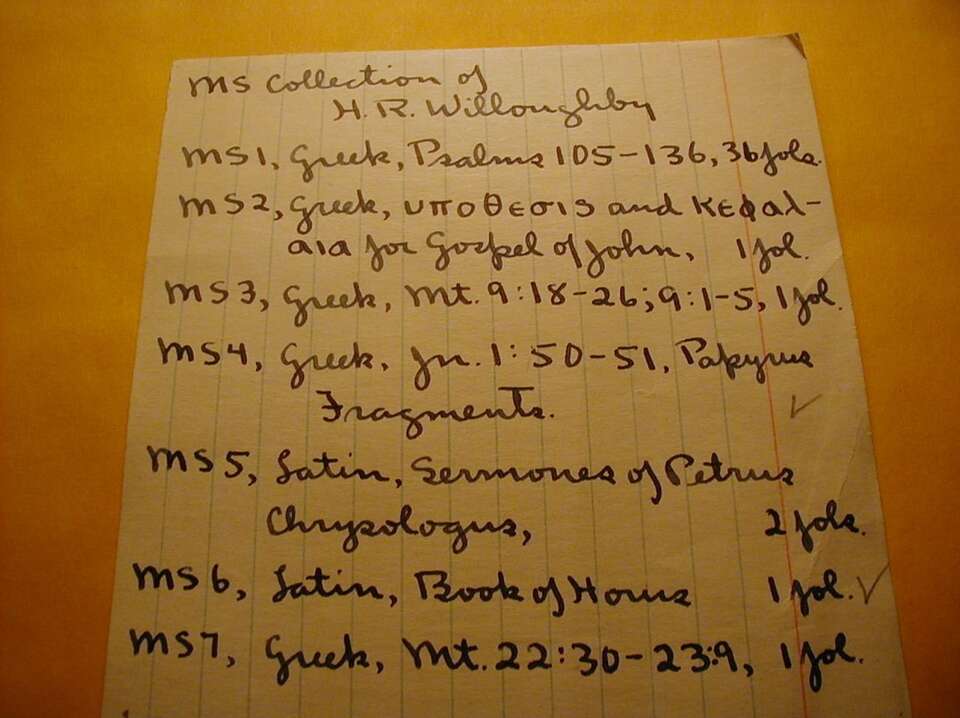 MS Collection of
H. R. Willoughby
MS 1, Greek, Psalms 105-136, 36 fols.
MS 2, Greek, υποθεσις and κεφαλ-
αια for Gospel of John, 1 fol.
MS 3, Greek, Mt. 9:18-26; 9:1-5, 1 fol.
MS 4, Greek, Jn. 1:50-51, Papyrus
Fragments. ✓
MS 5, Latin, Sermones of Petrus
Chrysologus, 2 fols.
MS 6, Latin, Book of Hours 1 fol. ✓
MS 7, Greek, Mt. 22:30-23:9, 1 fol.